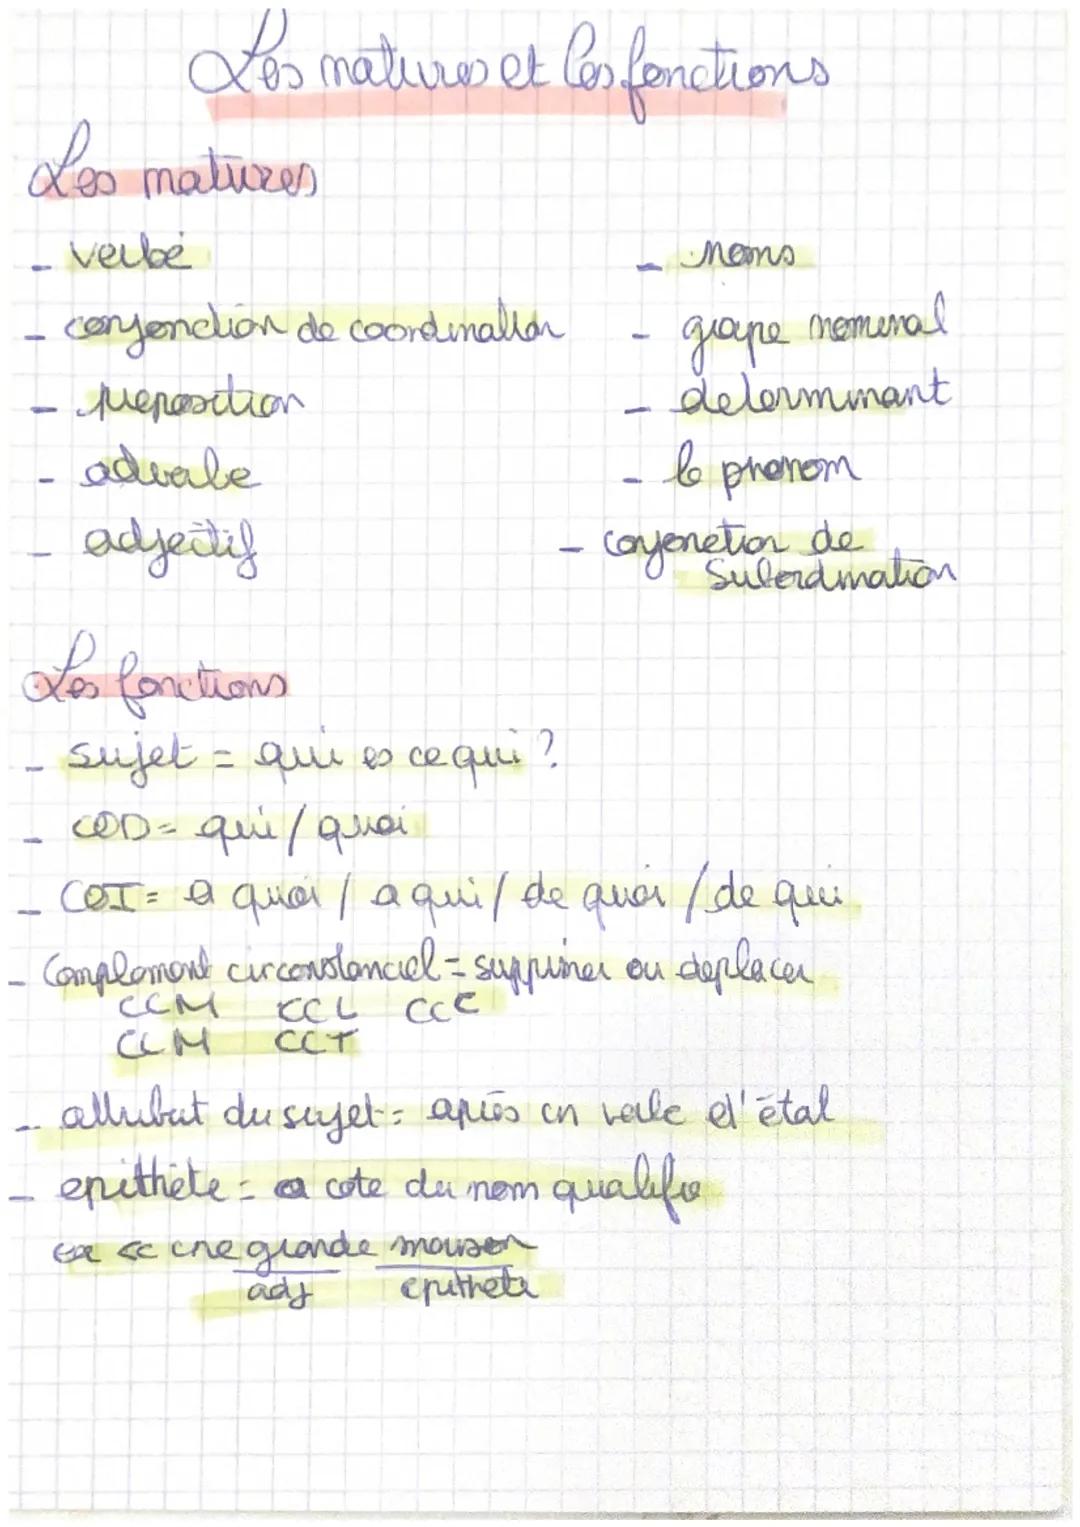 Les natures et les fonctions
Les natures
- verbe
- noms
- conjonction de coordination
- groupe nominal
- preposition
- determinant
- adverbe
- le pronom
- adjectif
- conjonction de
Subordination
Les fonctions
- sujet = qui es ce qui ?
- COD = qui / quoi
- COI = a quoi / a qui / de quoi / de qui
- Complement circonstanciel = supprimer ou deplacer
CCM CCL CCC
CCM CCT
- attribut du sujet = après un verbe d'état
- epithète = a cote du nom qualifie
ex << une grande maison
adj epithete